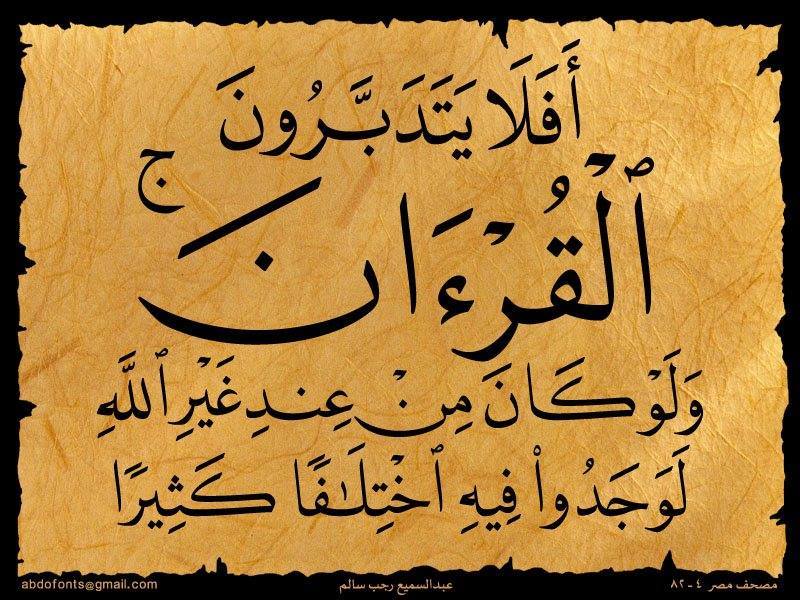 أَفَلَا يَتَدَبَّرُونَ
ٱلْقُرْءَانَ ۚ
وَلَوْ كَانَ مِنْ عِندِ غَيْرِ ٱللَّهِ
لَوَجَدُوا۟ فِيهِ ٱخْتِلَـٰفًا كَثِيرًا
مصحف مصر ٤-٨٢ عبدالسميع رجب سالم abdofonts@gmail.com